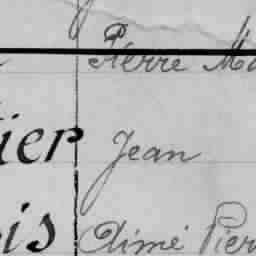 Pierre Ma
ier Jean
is Aimé Pier